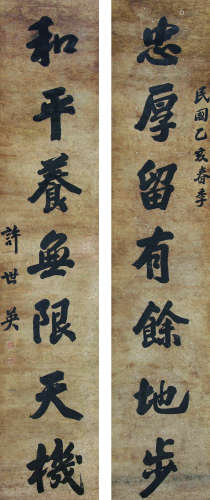 民國乙亥春季
忠厚留有餘地步
和平養無限天機
許世英